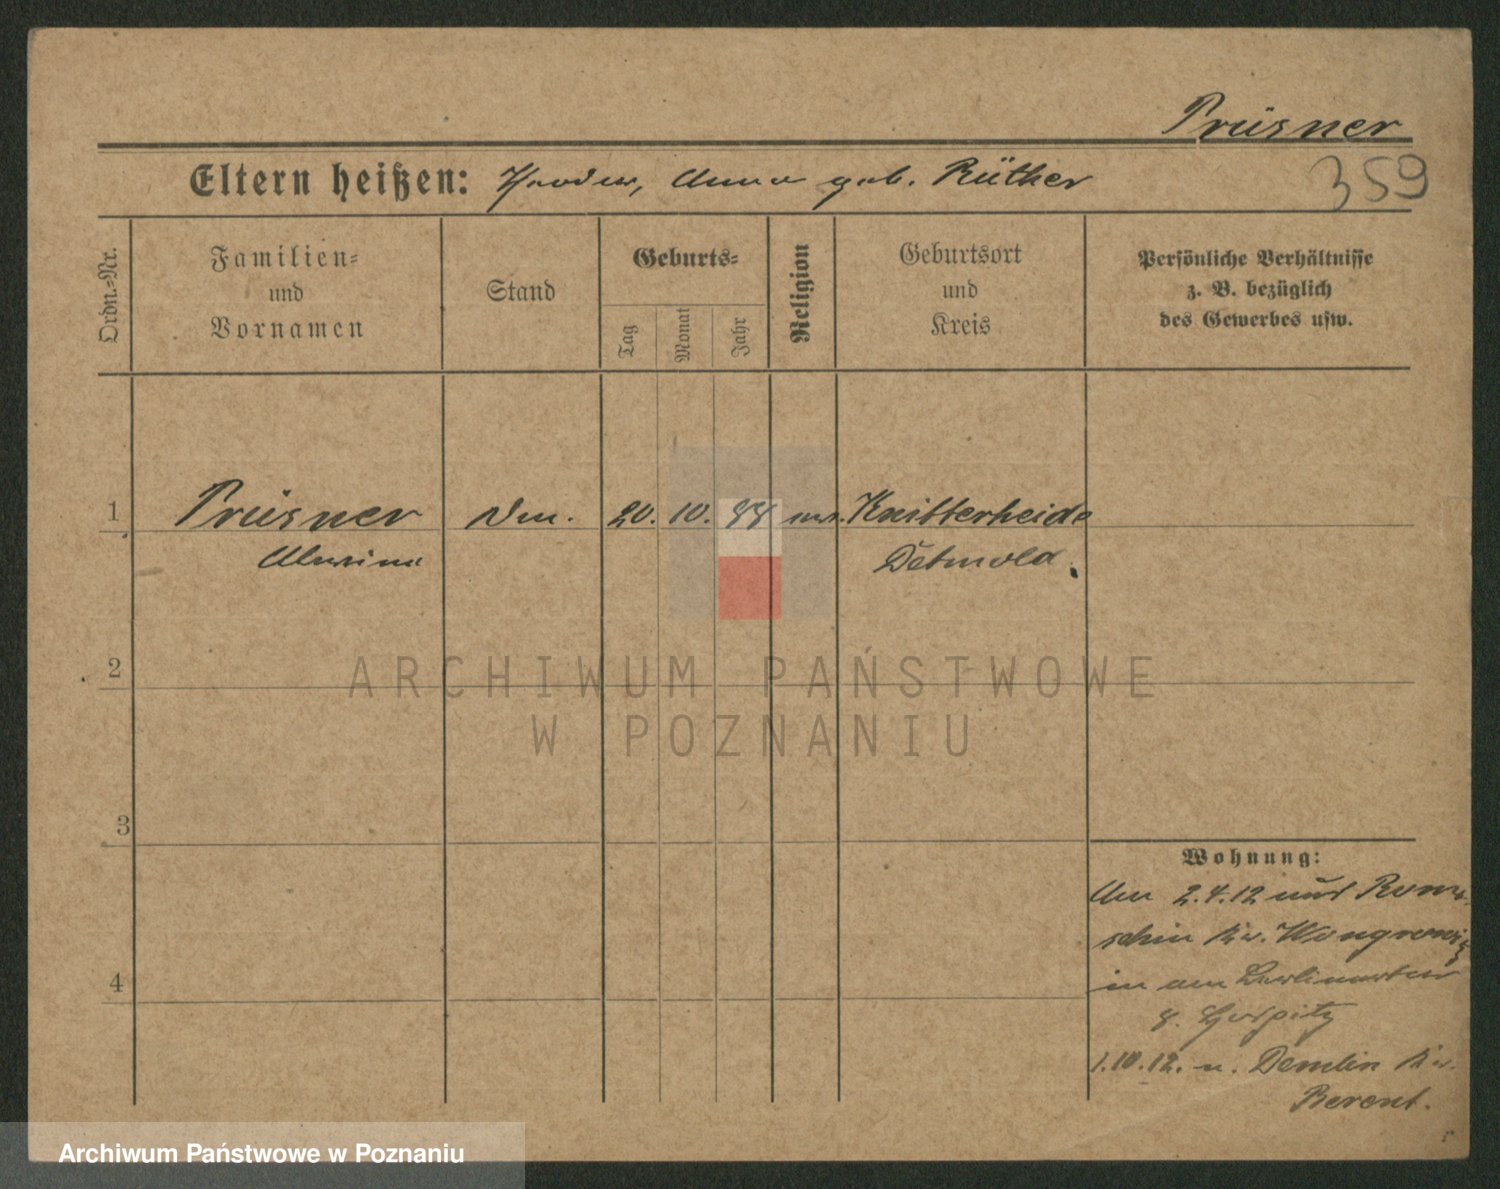 Prüsner
359
Eltern heißen: Theodor, Anna geb. Rüther
Ordn.-Nr.
Familien-
und
Vornamen
Stand
Geburts-
Tag
Monat
Jahr
Religion
Geburtsort
und
Kreis
Persönliche Verhältnisse
z. B. bezüglich
des Gewerbes usw.
1
Prüsner
20. 10. 88
Knitterheide
Detmold.
2
3
4
Wohnung:
2.4.12
in
8. Hospitz
1.10.12. n. Demlin Kr.
Berent.
ARCHIWUM PAŃSTWOWE
W POZNANIU
Archiwum Państwowe w Poznaniu